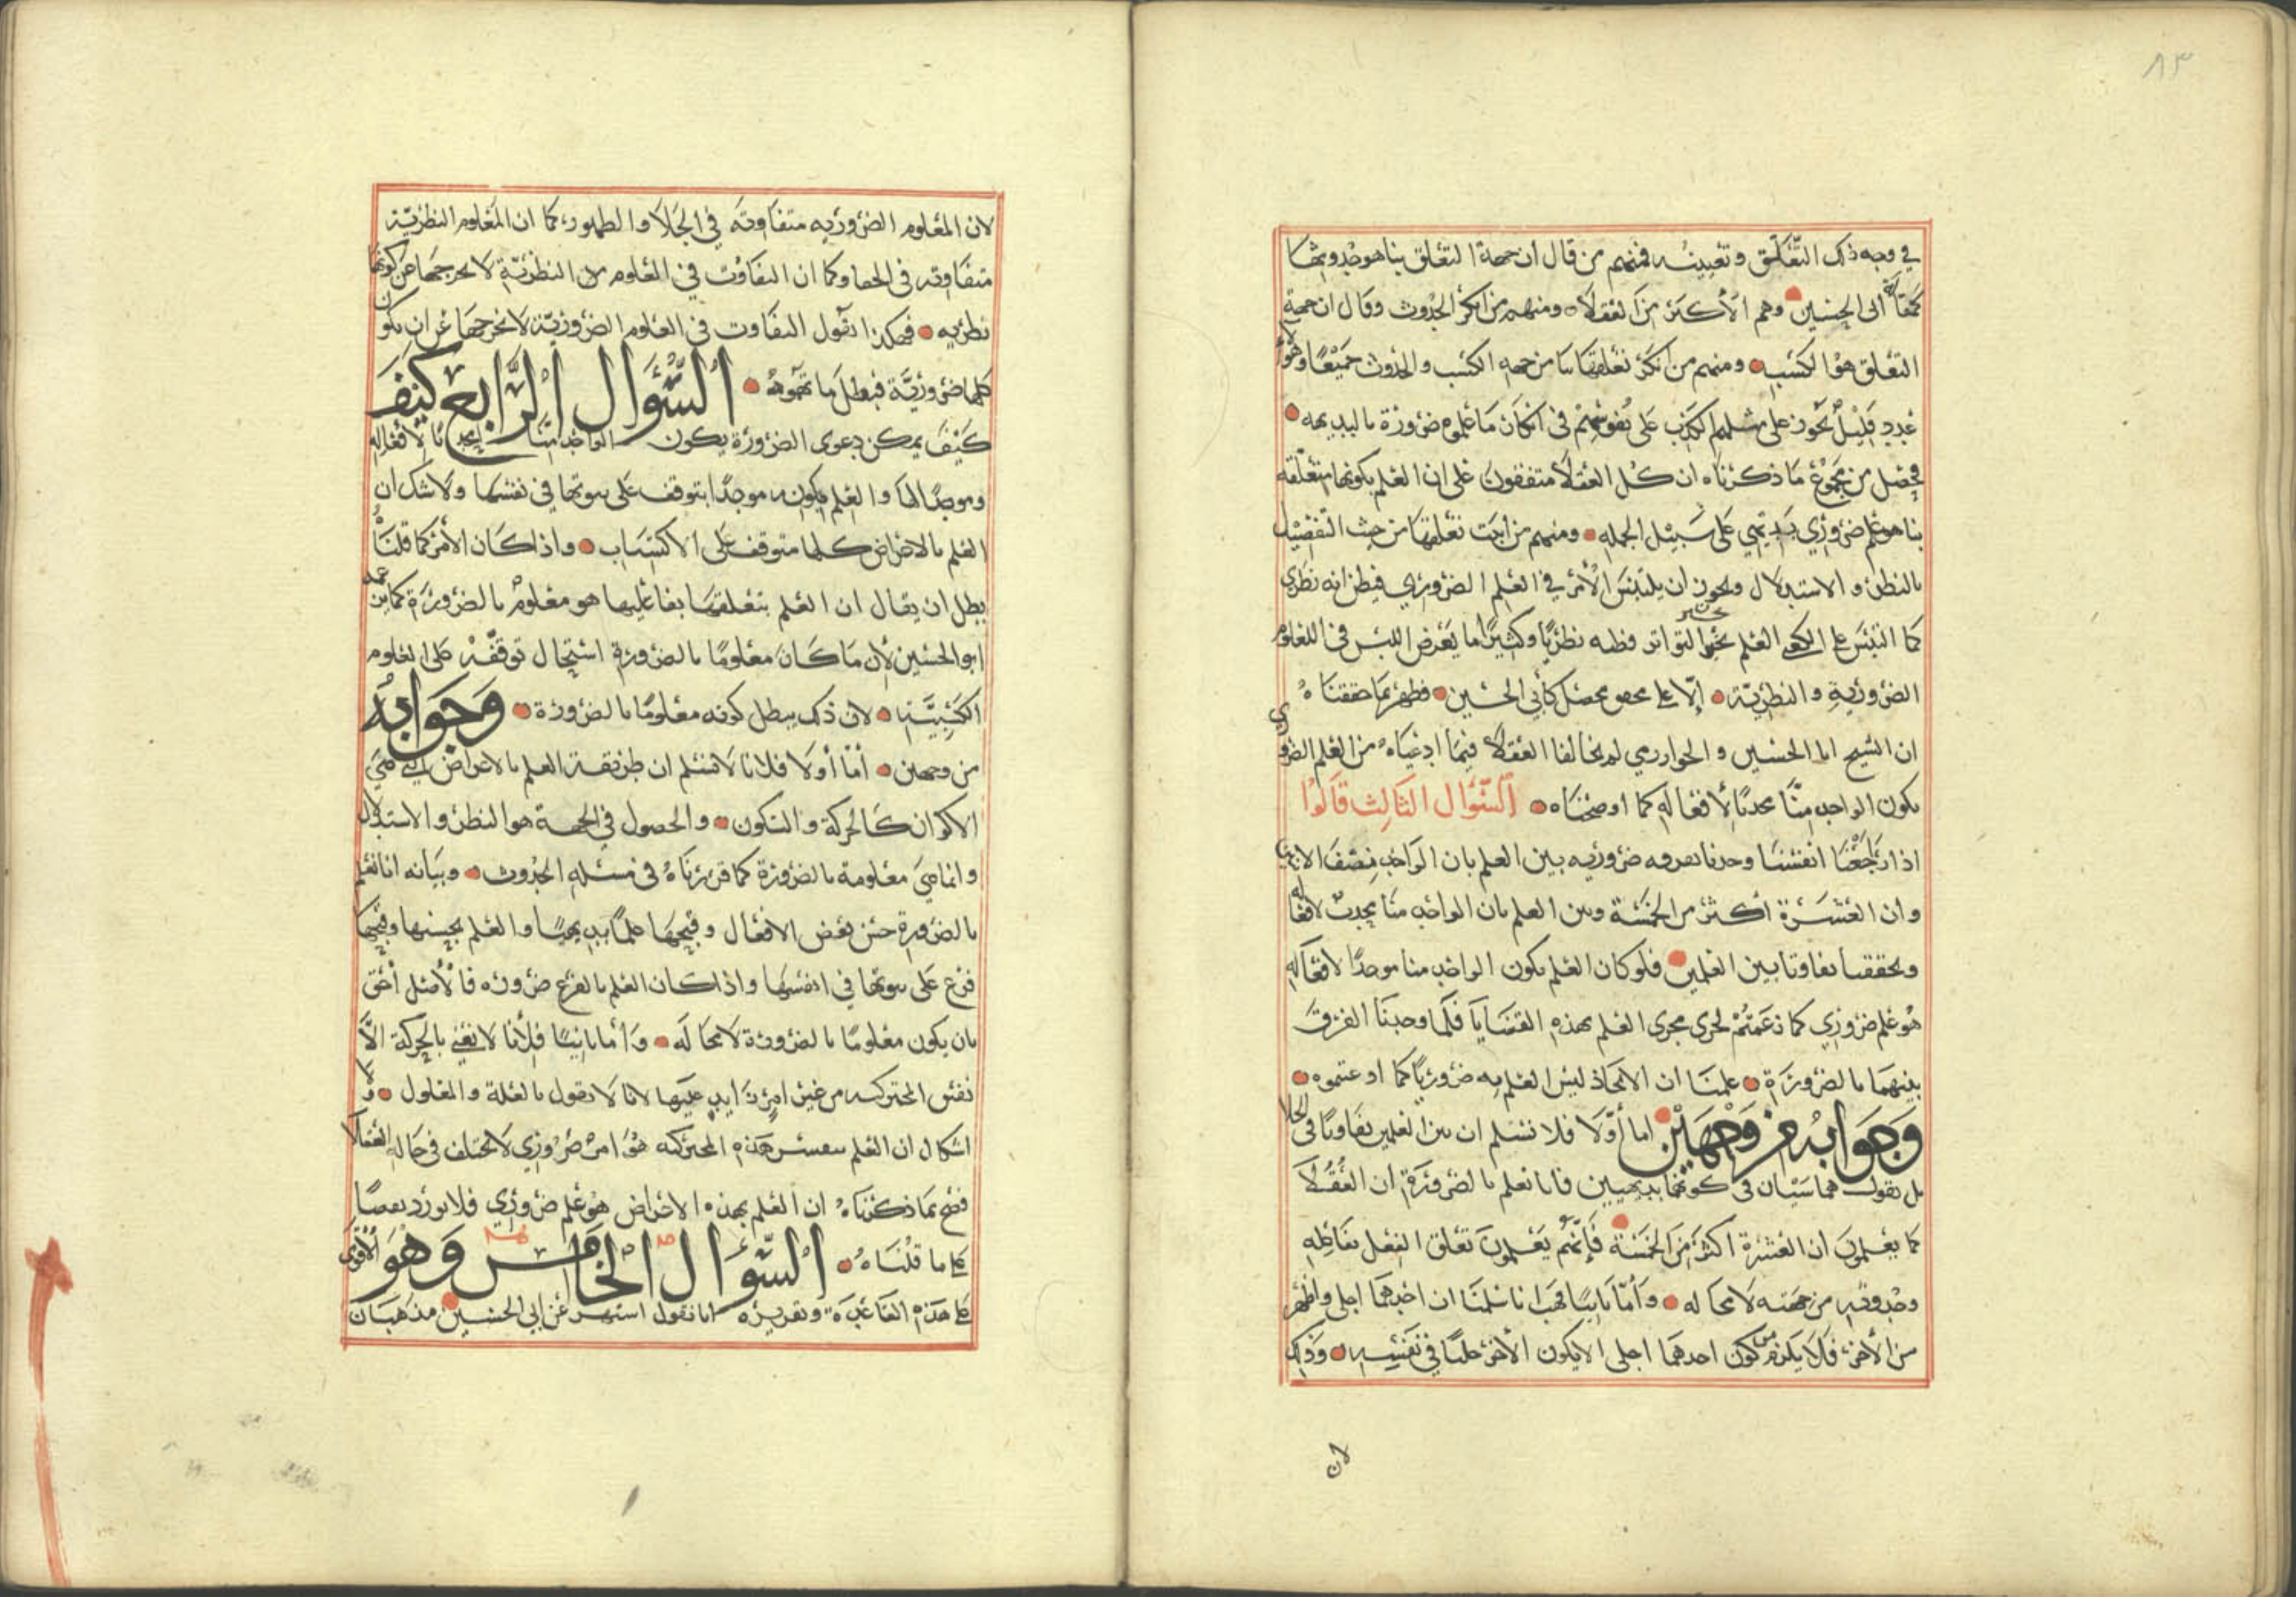 ٨٣
في وجه ذلك التعلق وتعيينه فمنهم من قال ان جهة التعلق بنا هو حدوثها
كمقالة ابى الحسين وهم الاكثر من العقلاء ومنهم من انكر الحدوث وقال ان جهة
التعلق هو الكسب ومنهم من انكر تعلقها بنا من جهه الكسب والحدوث جميعًا وهؤلاء
عدد قليل يجوز على مثلهم الكذب على نفوسهم في انكار ما علموه ضرورة بالبديهه
فحصل من مجموع ما ذكرناه ان كل العقلاء متفقون على ان العلم بكونها متعلقه
بنا هو علم ضروري بديهي على سبيل الجمله ومنهم من اثبت تعلقها من حيث التفصيل
بالنظر والاستدلال ويجوز ان يلتبس الأمر في العلم الضروري فيظن انه نظري
كما التبس على الكعبي العلم بخبر التواتر وظنه نظريًا وكثيرًا ما يعرض اللبس في العلوم
الضرورية والنظرية إلا على محصل كأبي الحسين فظهر بما حققناه
ان الشيخ ابا الحسين والخوارزمي لم يخالفا العقلاء فيما ادعياه من العلم الضروري
بكون الواحد منّا محدثا لأفعاله كما اوضحناه السؤال الثالث قالوا
اذا راجعنا انفسنا وجدنا تفرقه ضروريه بين العلم بان الواحد نصف الاثنين
وان العشرة اكثر من الخمسة وبين العلم بان الواحد منا يحدث لافعاله
وتحققنا تفاوتا بين العلمين فلو كان العلم بكون الواحد منا موجدًا لافعاله
هو علم ضروري كما زعمتم لجرى مجرى العلم بهذه القضايا فلما وجدنا الفرق
بينهما بالضرورة علمنا ان الايجاد ليس العلم به ضروريًا كما ادعيتموه
وجوابه من وجهين اما أولا فلا نسلم ان بين العلمين تفاوتًا في الجلا
بل نقول هما سيان في كونهما بديهيين فانا نعلم بالضرورة ان العقلا
كما يعلمون ان العشرة اكثر من الخمسة فإنهم يعلمون تعلق الفعل بفاعله
وحدوثه من جهته لا محاله وأمّا ثانيًا فهب انا سلمنا ان احدهما اجلى واظهر
من الأخر فلا يلزم من كون احدهما اجلى الا يكون الأخر جليًا في نفسه وذلك
لان
لان العلوم الضروريه متفاوته في الجلا والظهور كما ان العلوم النظرية
متفاوته في الخفا وكما ان التفاوت في العلوم النظرية لا يخرجها عن كونها
نظريه فهكذا نقول التفاوت في العلوم الضرورية لا يخرجها عن ان يكون
كلها ضرورية فبطل ما توهموه السؤال الرابع كيف
كيف يمكن دعوى الضرورة بكون الواحد منا محدثا لأفعاله
وموجدًا لها والعلم بكونه موجدًا يتوقف على ثبوتها في نفسها ولا شك ان
العلم بالاعراض كلها متوقف على الاكتساب واذا كان الأمر كما قلناه
يبطل ان يقال ان العلم بتعلقها بفاعليها هو معلوم بالضرورة كما زعمه
ابو الحسين لأن ما كان معلومًا بالضرورة استحال توقفه على العلوم
الكسبية لان ذلك يبطل كونه معلومًا بالضرورة وجوابه
من وجهين أمّا أولا فلانا لا نسلم ان طريقة العلم بالاعراض التي هي
الاكوان كالحركة والسكون والحصول في الجهة هو النظر والاستدلال
وانما هي معلومة بالضرورة كما قررناه في مسئله الحدوث وبيانه انا نعلم
بالضرورة حسن بعض الافعال وقبحها علمًا بديهيًا والعلم بحسنها وقبحها
فرع على ثبوتها في انفسها واذا كان العلم بالفرع ضروره فالأصل أحق
بان يكون معلومًا بالضرورة لا محالة وأما ثانيًا فلأنا لا نعني بالحركة الا
نفس المتحركيه من غير امر زايد عليها لانا لا نقول بالعلة والمعلول ولا
اشكال ان العلم بنفس هذه المتحركيه هو امر ضروري لا يختلف في حاله العقلا
فصح بما ذكرناه ان العلم بهذه الاعراض هو علم ضروري فلا يورد نقضًا
على ما قلناه السؤال الخامس وهو الأقوى
على هذه القاعدة وتقريره انا نقول اشتهر عن ابي الحسين مذهبان